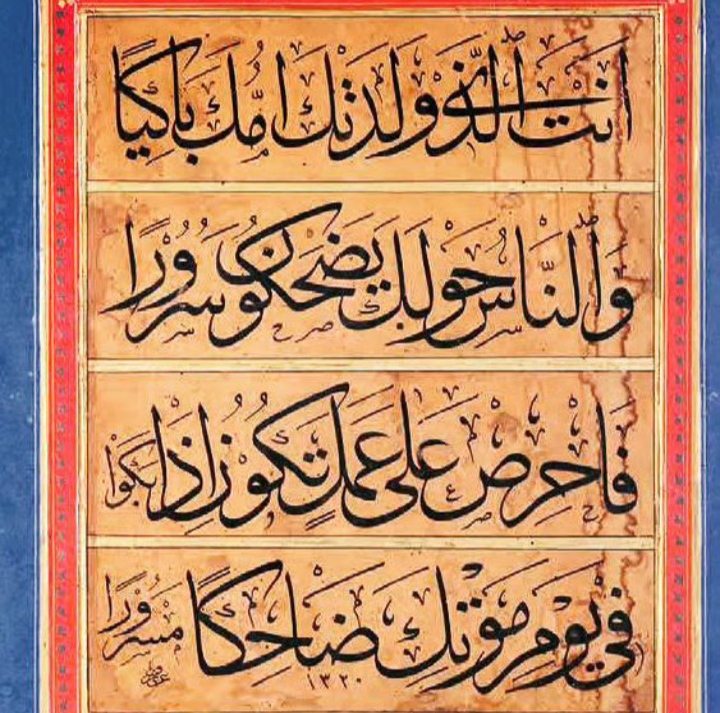 انت الذي ولدتك امك باكيا
والناس حولك يضحكون سرورا
فاحرص على عمل تكون اذا بكوا
في يوم موتك ضاحكا مسرورا
١٣٢٠